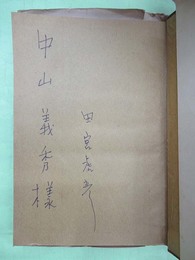 中山義秀様
田宮虎彦